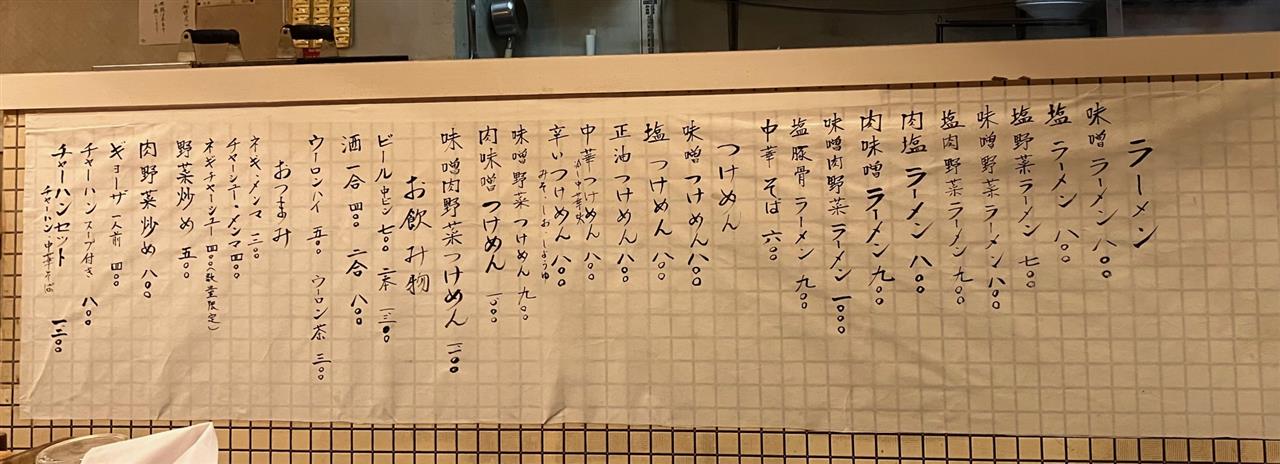 ラーメン
味噌ラーメン 八〇〇
塩ラーメン 八〇〇
塩野菜ラーメン 七〇〇
味噌野菜ラーメン 八〇〇
塩肉野菜ラーメン 九〇〇
肉塩ラーメン 八〇〇
肉味噌ラーメン 九〇〇
味噌肉野菜ラーメン 一〇〇〇
塩豚骨ラーメン 九〇〇
中華そば 六〇〇
つけめん
味噌つけめん 八〇〇
塩つけめん 八〇〇
正油つけめん 八〇〇
中華つけめん 八〇〇
辛いつけめん 八〇〇
みそ・しお・しょうゆ
味噌野菜つけめん 九〇〇
肉味噌つけめん 一〇〇〇
味噌肉野菜つけめん 一一〇〇
お飲み物
ビール 中ビン 七〇〇 二本 一三〇〇
酒一合 四〇〇 二合 八〇〇
ウーロンハイ 五〇〇 ウーロン茶 三〇〇
おつまみ
ネギ・メンマ 三〇〇
チャーシュー・メンマ 四〇〇
ネギチャーシュー 四〇〇(数量限定)
野菜炒め 五〇〇
肉野菜炒め 八〇〇
ギョーザ 一人前 四〇〇
チャーハン スープ付き 八〇〇
チャーハンセット 一三〇〇
チャーハン・中華そば